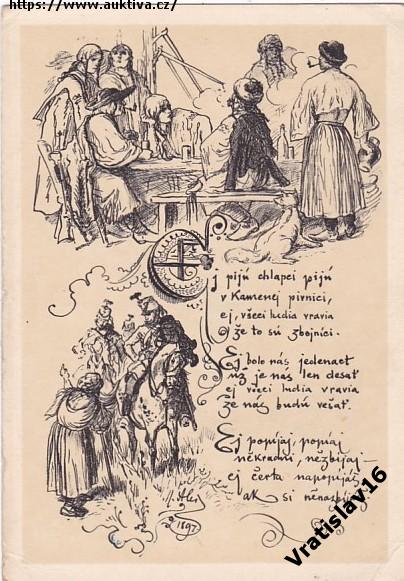 https://www.auktiva.cz/
Ej pijú chlapci pijú
v Kamenej pivnici,
ej, všeci ludia vravia
že to sú zbojníci.
Ej bolo nás jedenact
už je nás len desať
ej všeci ludia vravia
že nás budú vešať.
Ej popíjaj, popíjaj
někradni, nězbíjaj
ej čerta napopíjáš
ak si něnazbíjáš
M. Aleš
1897
Vratislav16